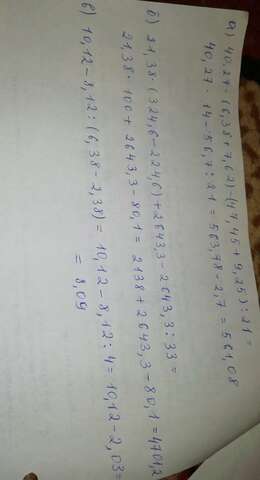 а) 40,27 · (6,38+7,62)-(47,45+9,25):21=
40,27 · 14-56,7:21=563,78-2,7=561,08
б) 21,38 · (324,6-224,6)+2643,3-2643,3:33=
21,38 · 100+2643,3-80,1=2138+2643,3-80,1=4701,2
в) 10,12-8,12:(6,38-2,38)=10,12-8,12:4=10,12-2,03=
= 8,09